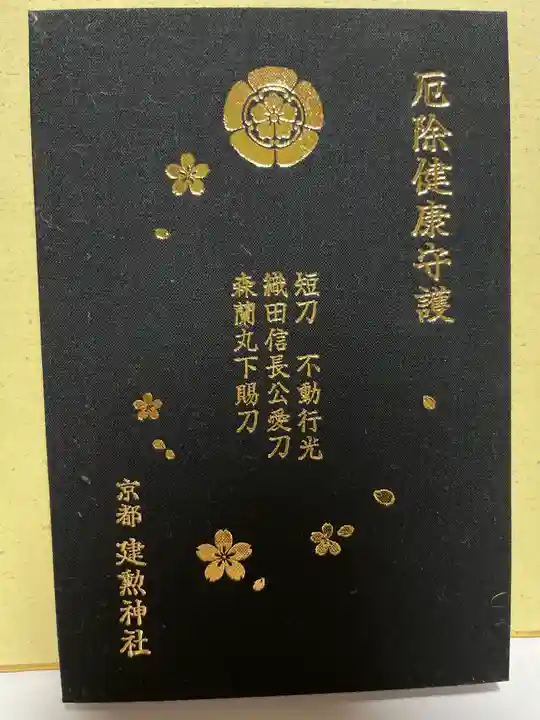 厄除健康守護
短刀　不動行光
織田信長公愛刀
森蘭丸下賜刀
京都 建勲神社